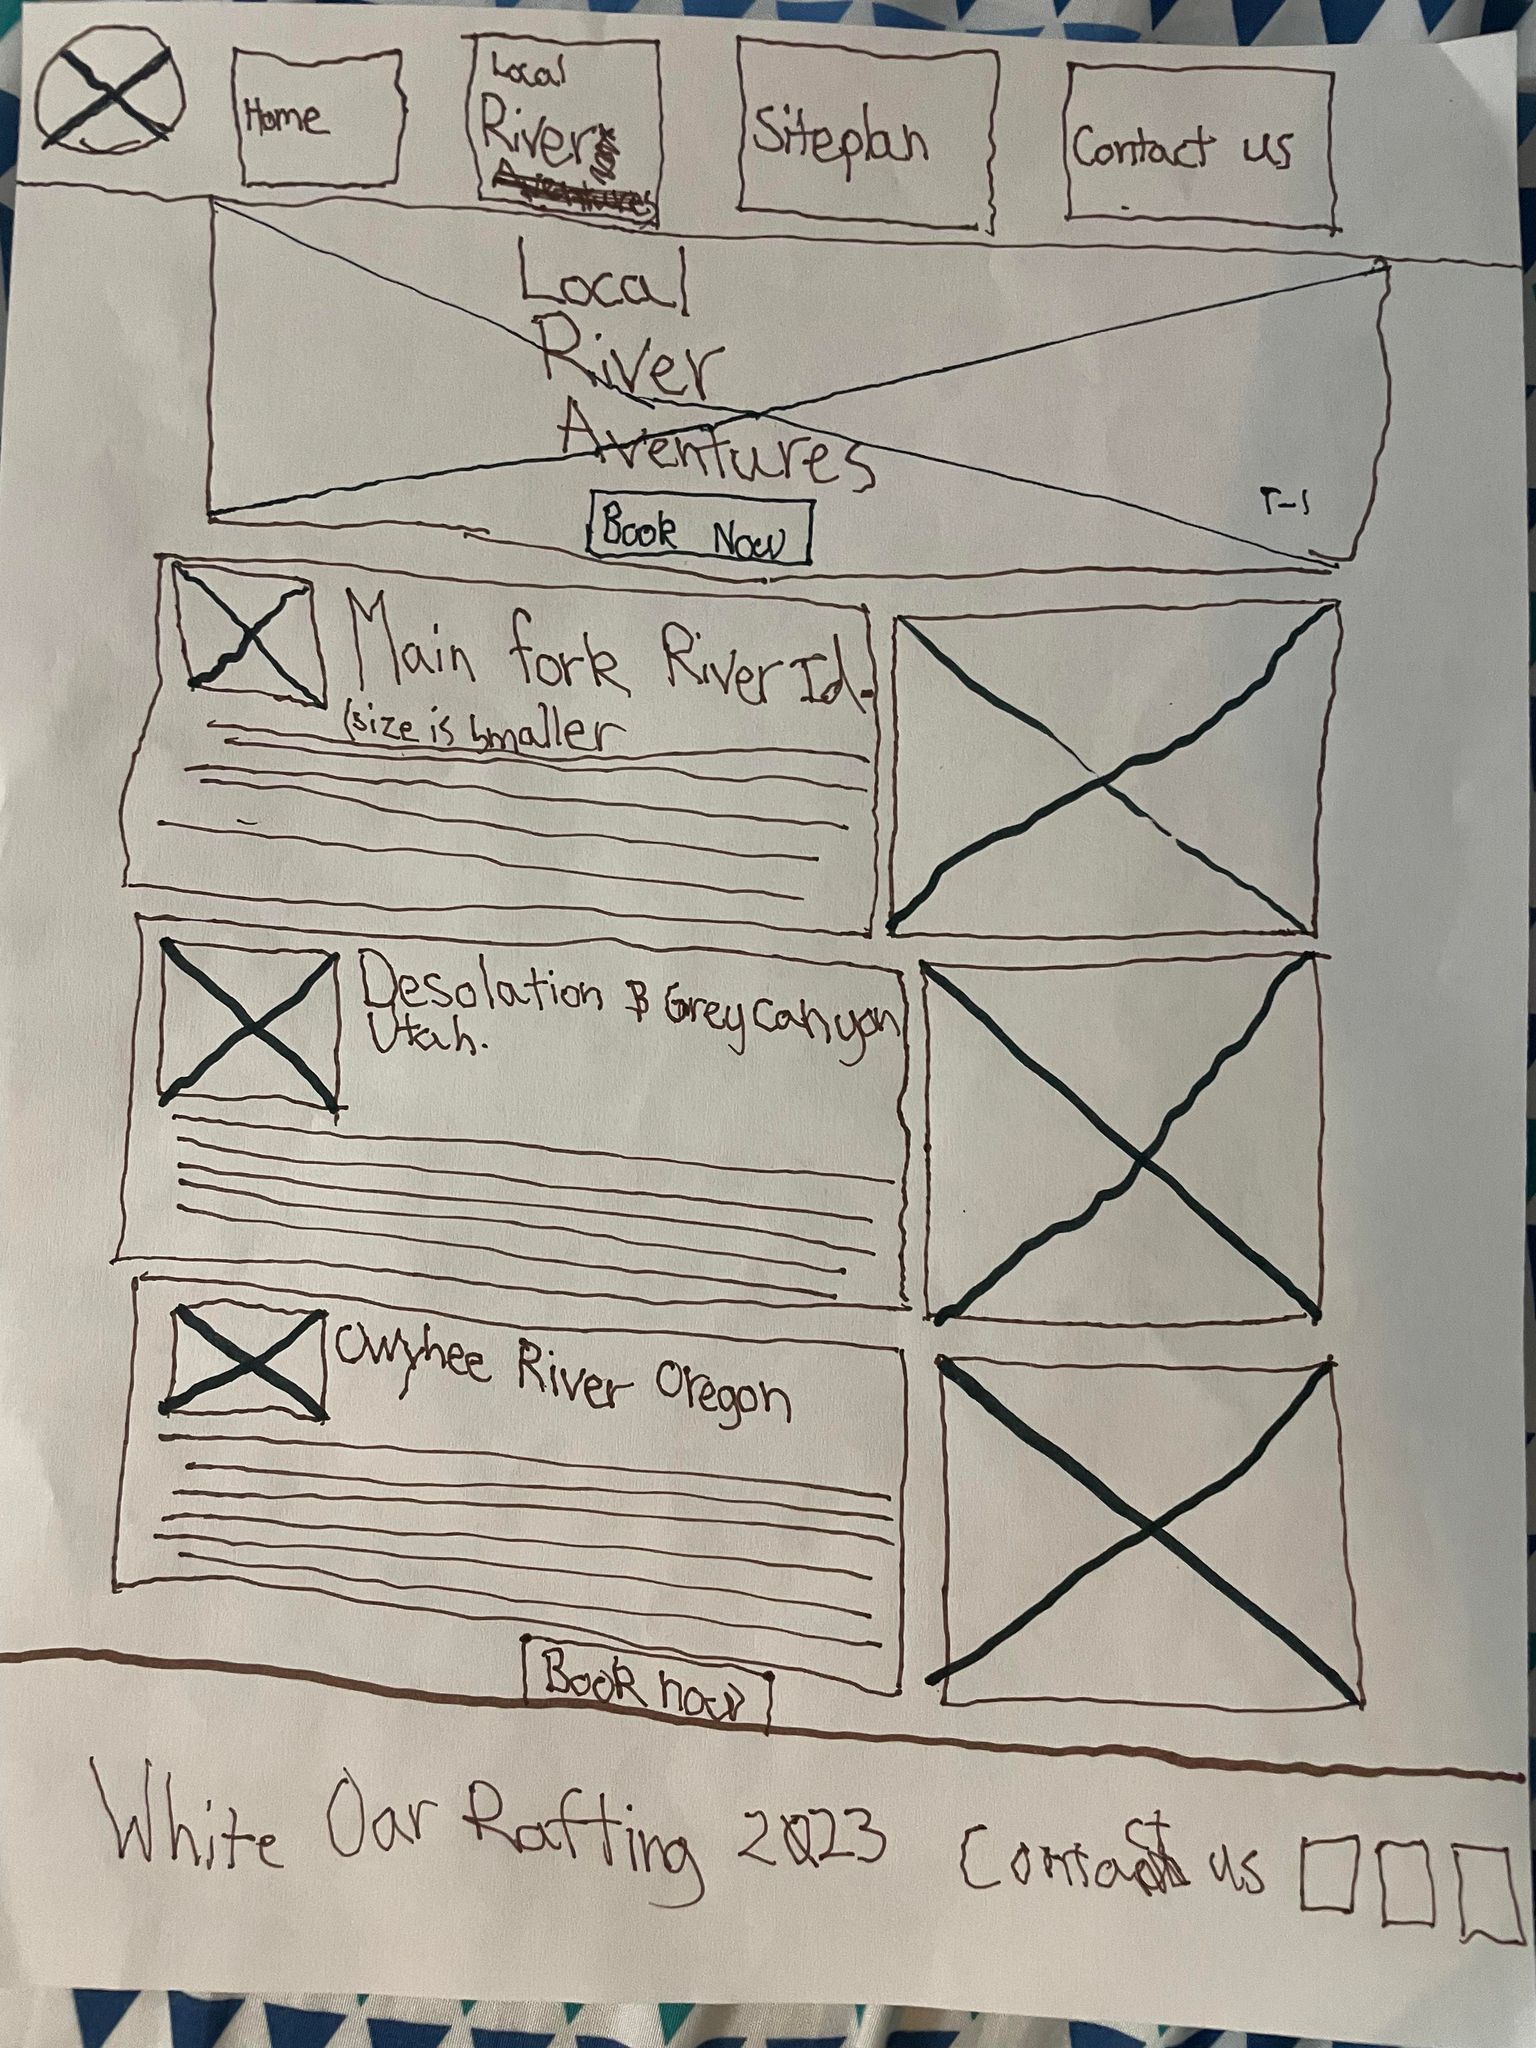 Home
Local
River
Siteplan
Contact us
Local
River
Aventures
Book Now
Main fork River Id.
(size is smaller
Desolation & Grey Canyon
Utah.
Owyhee River Oregon
Book now
White Oar Rafting 2023 Contact us